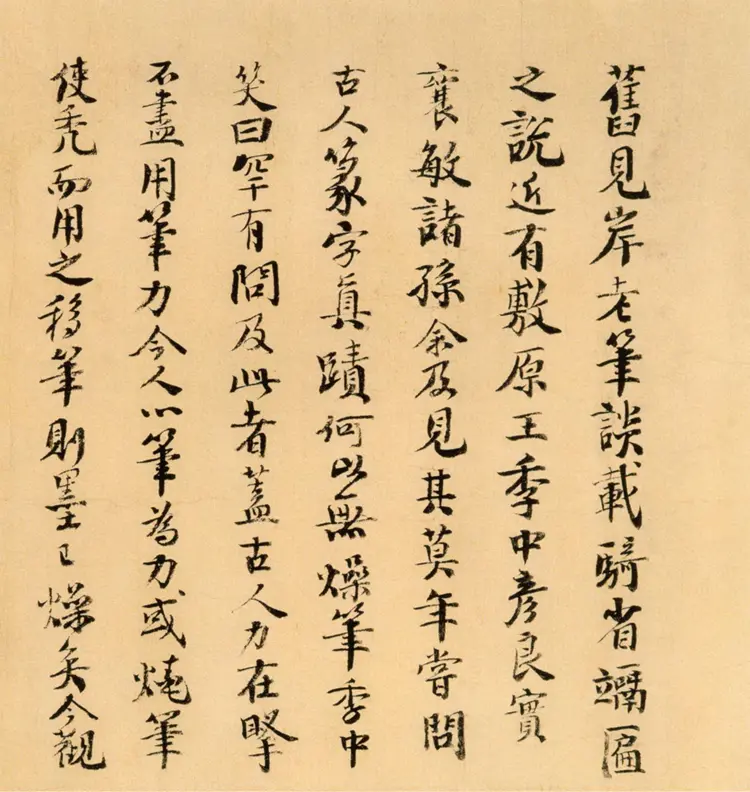 舊見岸老筆談載騎省䠳匾
之說近有敷原王季中彥良實
襄敏諸孫余及見其莫年嘗問
古人篆字真蹟何以無燥筆季中
笑曰罕有問及此者蓋古人力在掔
不盡用筆力今人以筆為力或燒筆
使禿而用之移筆則墨已燥矣今觀